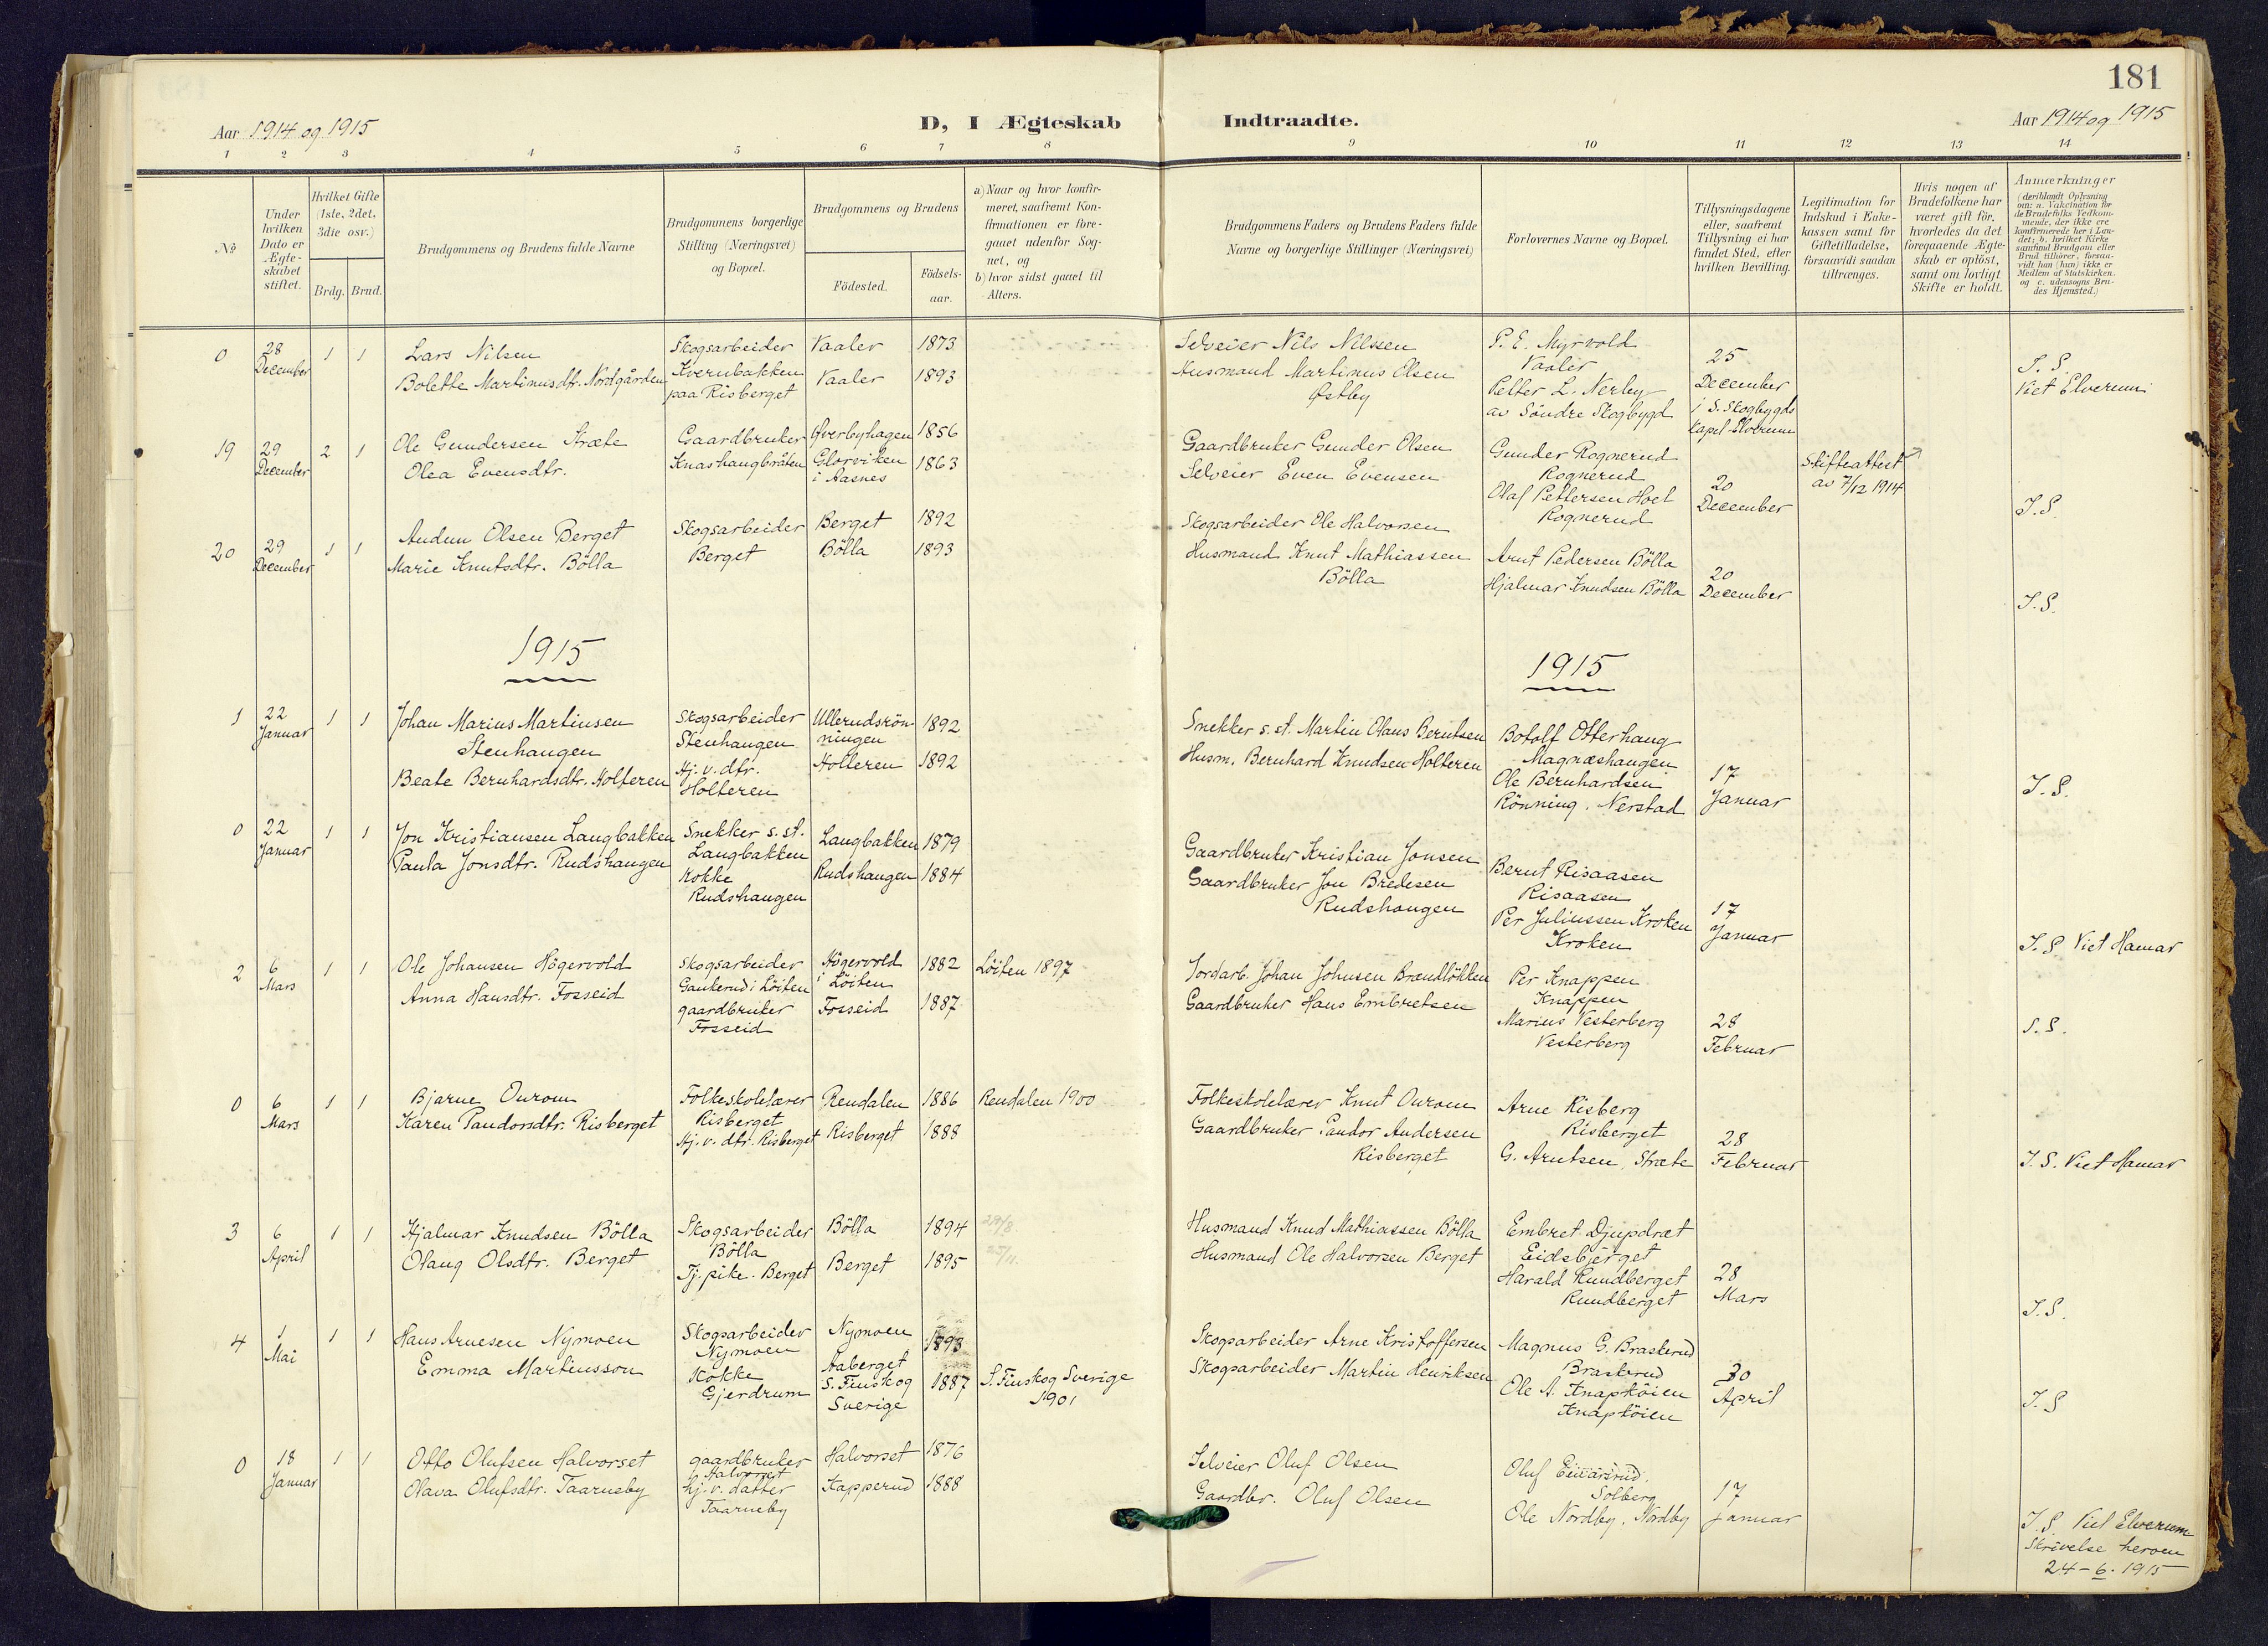 181
Aar 1914 og 1915
D, I Ægteskab Indtraadte.
Aar 1914 og 1915
1 2 3 4 5 6 7 8 9 10 11 12 13 14
No
Under hvilken Dato er Ægteskabet stiftet.
Hvilket Gifte (1ste, 2det, 3die osv.)
Brdg. Brud.
Brudgommens og Brudens fulde Navne
Brudgommens borgerlige Stilling (Næringsvei) og Bopæl.
Brudgommens og Brudens
Födested.
Födsels-aar.
a) Naar og hvor konfirmeret, saafremt Konfirmationen er foregaaet udenfor Sognet, og
b) hvor sidst gaaet til Alters.
Brudgommens Faders og Brudens Faders fulde Navne og borgerlige Stillinger (Næringsvei)
Forlovernes Navne og Bopæl.
Tillysningsdagene eller, saafremt Tillysning ei har fundet Sted, efter hvilken Bevilling.
Legitimation for Indskud i Enkekassen samt for Giftetilladelse, forsaavidt saadan tiltrænges.
Hvis nogen af Brudefolkene har været gift för, hvorledes da det foregaaende Ægteskab er oplöst, samt om lovligt Skifte er holdt.
Anmærkninger
(deriblandt Oplysning om: a. Vakcination for de Brudefolks Vedkommende, der ikke ere konfirmerede her i Landet; b. hvilket Kirkesamfund Brudgom eller Brud tilhører, forsaavidt han (hun) ikke er Medlem af Statskirken. og c. udensogns Brudes Hjemsted.)
0 28 December 1 1
Lars Nilsen
Bolette Martinusdtr. Nordgården
Skogsarbeider
Kvernbakken
paa Risberget
Vaaler 1873
Vaaler 1893
Selveier Nils Nilssen
Husmand Martinus Olsen
Østby
P. E. Myrvold
Vaaler
Petter L. Nerby
av Söndre Skogbygd
25
December
i S. Skogbygds
kapel Elverum
I. S.
Viet Elverum
19 29 December 2 1
Ole Gundersen Stræte
Olea Evensdtr.
Gaardbruker
Knashaugbråten
Øverbyhagen 1856
Glorviken 1863
i Aasnes
Gaardbruker Gunder Olsen
Selveier Even Evensen
Gunder Rognerud
Rognerud
Olaf Pettersen Hoel
Rognerud
20
December
Skifteattest
av 7/12 1914
I. S.
20 29 December 1 1
Audun Olsen Berget
Marie Knutsdtr. Bölla
Skogsarbeider
Berget
Berget 1892
Bölla 1893
Skogsarbeider Ole Halvorsen
Husmand Knut Mathiassen
Bölla
Arnt Pedersen Bölla
Hjalmar Knudsen Bölla
20
December
I. S.
1915
1915
1 22 Januar 1 1
Johan Marius Martinsen
Stenhaugen
Beate Bernhardsdtr. Holteren
Skogsarbeider
Stenhaugen
Hj. v. dtr.
Holteren
Ullerudsrön-
ningen 1892
Holteren 1892
Snekker s. st. Martin Olaus Berntsen
Husm. Bernhard Knudsen Holteren
Botolf Otterhaug
Magnæshaugen
Ole Bernhardsen
Rönning. Nerstad
17
Januar
I. S.
0 22 Januar 1 1
Jon Kristiansen Langbakken
Paula Jonsdtr. Rudshaugen
Snekker s. st.
Langbakken
Kokke
Rudshaugen
Langbakken 1879
Rudshaugen 1884
Gaardbruker Kristian Jonsen
Gaardbruker Jon Bredesen
Rudshaugen
Bernt Risaasen
Risaasen
Per Juliussen Kroken
Kroken
17
Januar
I. S. Viet Hamar
2 6 Mars 1 1
Ole Johansen Högervold
Anna Hansdtr. Fosseid
Skogsarbeider
Gaukerud i Löiten
gaardbruker
Fosseid
Högervold
i Löiten 1882
Fosseid 1887
Löiten 1897
Jordarb. Johan Johnsen Brændlökken
Gaardbruker Hans Embretsen
Per Knappen
Knappen
Marius Vesterberg
Vesterberg
28
Februar
I. S.
0 6 Mars 1 1
Bjarne Ourom
Karen Pandorsdtr. Risberget
Folkeskolelærer
Risberget
Hj. v. dtr. Risberget
Rendalen 1886
Risberget 1888
Rendalen 1900
Folkeskolelærer Knut Ourom
Gaardbruker Pandor Andersen
Risberget
Arne Risberg
Risberget
G. Arntsen. Stræte
28
Februar
I. S. Viet Hamar
3 6 April 1 1
Hjalmar Knudsen Bölla
Olaug Olsdtr. Berget
Skogsarbeider
Bölla
Tj. pike. Berget
Bölla 1894
Berget 1895
Husmand Knud Mathiassen Bölla
Husmand Ole Halvorsen Berget
Embret Djupdræt
Eidsbjerget
Harald Rundberget
Rundberget
28
Mars
I. S.
4 1 Mai 1 1
Hans Arnesen Nymoen
Emma Martinsson
Skogsarbeider
Nymoen
Kokke
Gjerdrum
Nymoen 1893
Aaberget
S. Finskog 1887
Sverige
S. Finskog Sverige
1901
Skogsarbeider Arne Kristoffersen
Skogsarbeider Martin Henriksen
Magnus G. Braskerud
Braskerud
Ole A. Knapköien
Knapköien
April
I. S
0 18 Januar 1 1
Otto Olufsen Halvorset
Olava Olufsdtr. Taarneby
gaardbruker
Halvorset
hj. v. datter
Taarneby
Halvorset 1876
Kapperud 1888
Selveier Oluf Olsen
Gaardbr. Oluf Olsen
Oluf
Solberg
Ole Nordby. Nordby
17
Januar
I. S. Viet Elverum
Skrivelse herom
24-6-1915